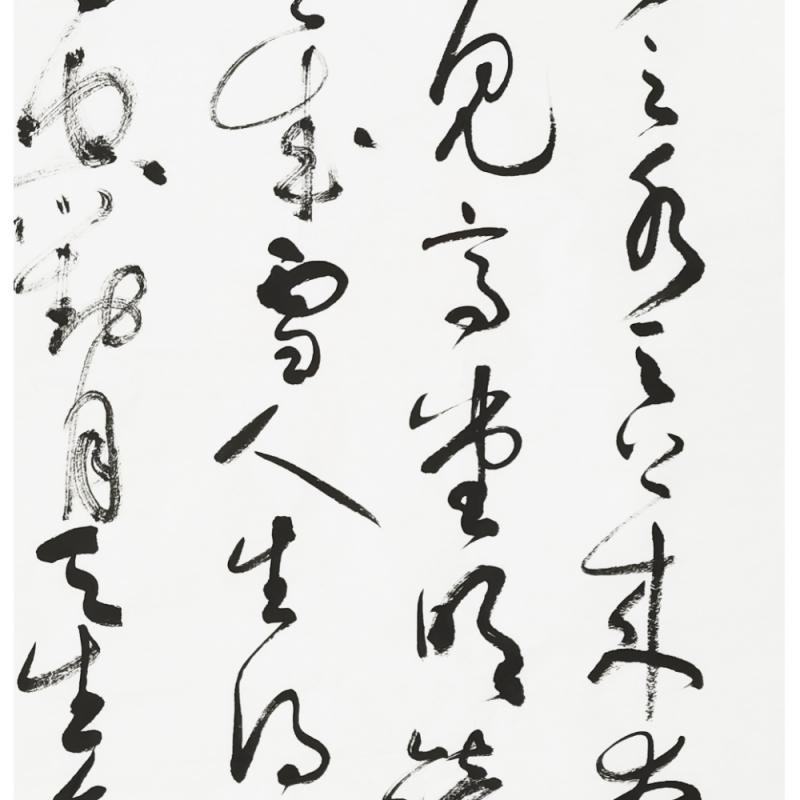 之水天上來
見高堂明鏡
成雪人生得
對月天生